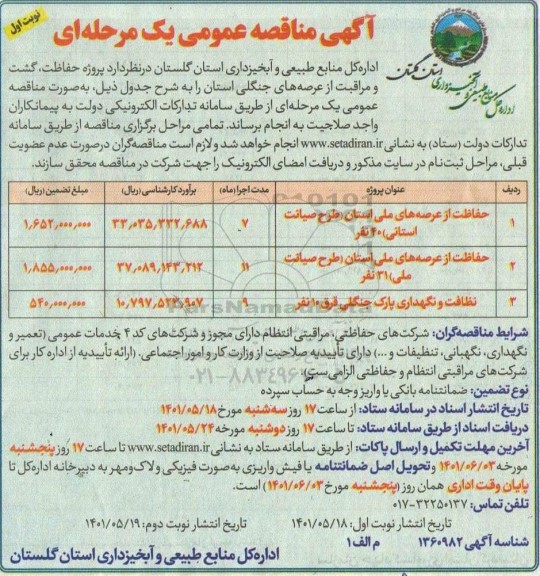 نوبت اول
آگهی مناقصه عمومی یک مرحله‌ای
اداره کل منابع طبیعی و آبخیزداری استان گلستان
اداره‌کل منابع طبیعی و آبخیزداری استان گلستان درنظردارد پروژه حفاظت، گشت
و مراقبت از عرصه‌های جنگلی استان را به شرح جدول ذیل، به‌صورت مناقصه
عمومی یک مرحله‌ای از طریق سامانه تدارکات الکترونیکی دولت به پیمانکاران
واجد صلاحیت به انجام برساند. تمامی مراحل برگزاری مناقصه از طریق سامانه
تدارکات دولت (ستاد) به نشانی www.setadiran.ir انجام خواهد شد و لازم است مناقصه‌گران درصورت عدم عضویت
قبلی، مراحل ثبت‌نام در سایت مذکور و دریافت امضای الکترونیک را جهت شرکت در مناقصه محقق سازند.
ردیف عنوان پروژه مدت اجرا (ماه) برآورد کارشناسی (ریال) مبلغ تضمین (ریال)
۱ حفاظت از عرصه‌های ملی استان (طرح صیانت استانی) ۴۰ نفر ۷ ۳۳,۰۳۵,۳۳۲,۶۸۸ ۱,۶۵۲,۰۰۰,۰۰۰
۲ حفاظت از عرصه‌های ملی استان (طرح صیانت ملی) ۳۱ نفر ۱۱ ۳۷,۰۸۹,۱۴۳,۲۱۲ ۱,۸۵۵,۰۰۰,۰۰۰
۳ نظافت و نگهداری پارک جنگلی قرق ۱۰ نفر ۹ ۱۰,۷۹۷,۵۲۳,۹۰۷ ۵۴۰,۰۰۰,۰۰۰
شرایط مناقصه‌گران: شرکت‌های حفاظتی، مراقبتی انتظام دارای مجوز و شرکت‌های کد ۴ خدمات عمومی (تعمیر و
نگهداری، نگهبانی، تنظیفات و ...) دارای تأییدیه صلاحیت از وزارت کار و امور اجتماعی. (ارائه تأییدیه از اداره کار برای
شرکت‌های مراقبتی انتظام و حفاظتی الزامی‌ست)
نوع تضمین: ضمانتنامه بانکی یا واریز وجه به حساب سپرده
تاریخ انتشار اسناد در سامانه ستاد: از ساعت ۱۷ روز سه‌شنبه مورخ ۱۴۰۱/۰۵/۱۸
دریافت اسناد از طریق سامانه ستاد: تا ساعت ۱۷ روز دوشنبه مورخه ۱۴۰۱/۰۵/۲۴
آخرین مهلت تکمیل و ارسال پاکات: از طریق سامانه ستاد به نشانی www.setadiran.ir تا ساعت ۱۷ روز پنجشنبه
مورخه ۱۴۰۱/۰۶/۰۳ و تحویل اصل ضمانتنامه یا فیش واریزی به‌صورت فیزیکی و لاک‌ومهر به دبیرخانه اداره‌کل تا
پایان وقت اداری همان روز (پنجشنبه مورخ ۱۴۰۱/۰۶/۰۳) است.
تلفن تماس: ۰۱۷-۳۲۲۵۰۱۳۷
تاریخ انتشار نوبت اول: ۱۴۰۱/۰۵/۱۸ تاریخ انتشار نوبت دوم: ۱۴۰۱/۰۵/۱۹
شناسه آگهی ۱۳۶۰۹۸۲ م الف ۱
اداره‌کل منابع طبیعی و آبخیزداری استان گلستان